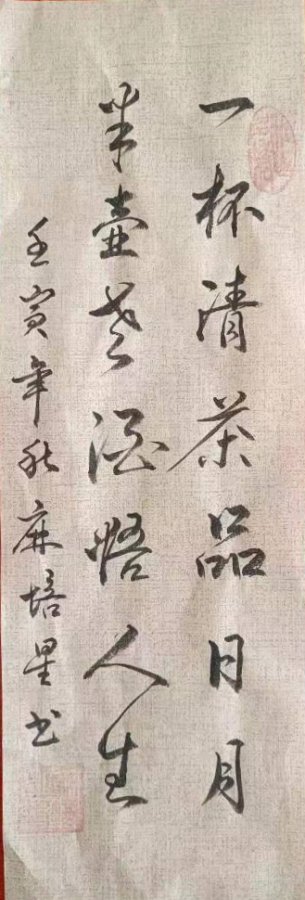 一杯清茶品日月
半壶老酒悟人生
壬寅年秋麻培星书